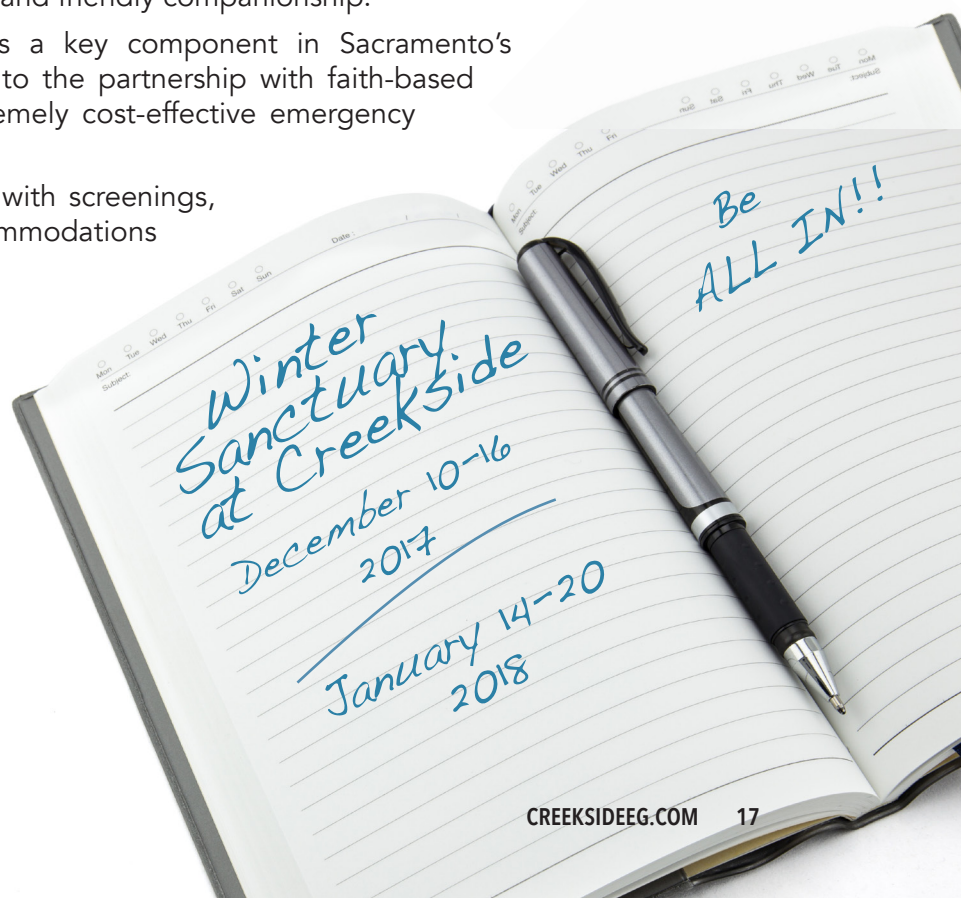 and friendly companionship.
s a key component in Sacramento's
to the partnership with faith-based
emely cost-effective emergency
with screenings,
mmodations
Mon Tue Wed Thu Fri Sat Sun
Date : / /
Subject:
Winter
Sanctuary
at Creekside
December 10-16
2017
January 14-20
2018
Mon Tue Wed Thu Fri
Subject:
Sun Sat Fri Thu Wed Tue Mon
Subject:
Be
ALL IN!!
CREEKSIDEEG.COM 17